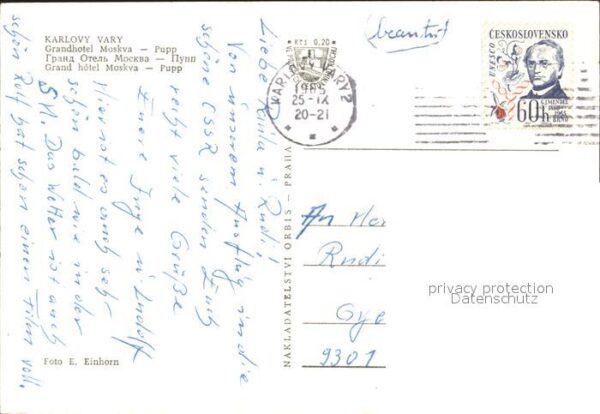 KARLOVY VARY
Grandhotel Moskva — Pupp
Гранд Отель Москва — Пупп
Grand hôtel Moskva — Pupp
(beantw.)
Kčs 0,20
KARLOVY VARY 2
1965
25-IX
20-21
ČESKOSLOVENSKO
UNESCO
G. J. MENDEL
60h
Liebe Paula u. Rudi!
Von unserem Ausflug in die
schöne ČSSR senden Euch
recht viele Grüße
Eure Inge u. Rudolf
Hier ist es auch sehr
schön bald wie in der
SW. Das Wetter ist auch
schön Rolf hat schon einen Film voll.
NAKLADATELSTVÍ ORBIS — PRAHA
An Her
Rudi
Oye
9301
privacy protection
Datenschutz
Foto E. Einhorn